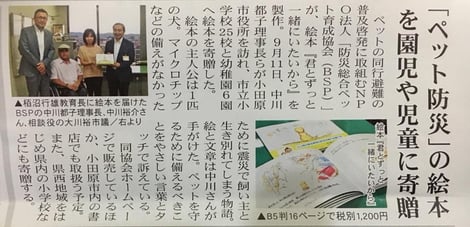 「ペット防災」の絵本
を園児や児童に寄贈
ペットの同行避難の
普及啓発に取組むNP
O法人「防災総合ペッ
ト育成協会（BSP）」
が、絵本『君とずっと
一緒にいたいから』を
製作。9月11日、中川
都子理事長らが小田原
市役所を訪れ、市立小
学校25校と幼稚園6園
へ絵本を寄贈した。
絵本の主人公は1匹
の犬。マイクロチップ
などの備えがなかった
ために震災で飼い主と
生き別れてしまう物語。
絵と文章は中川さんが
手がけた。ペットを守
るために備えるべきこ
とをやさしい言葉とタ
ッチで訴えている。
同協会ホームペー
ジで販売しているほ
か、小田原市内の書
店でも取扱う予定。
また、県西地域をは
じめ県内の小学校な
どにも寄贈する。
▲栢沼行雄教育長に絵本を届けた
BSPの中川都子理事長、中川裕介さ
ん、相談役の大川裕市議／右より
絵本『君とずっと
一緒にいたいから』
▲B5判16ページで税別1,200円